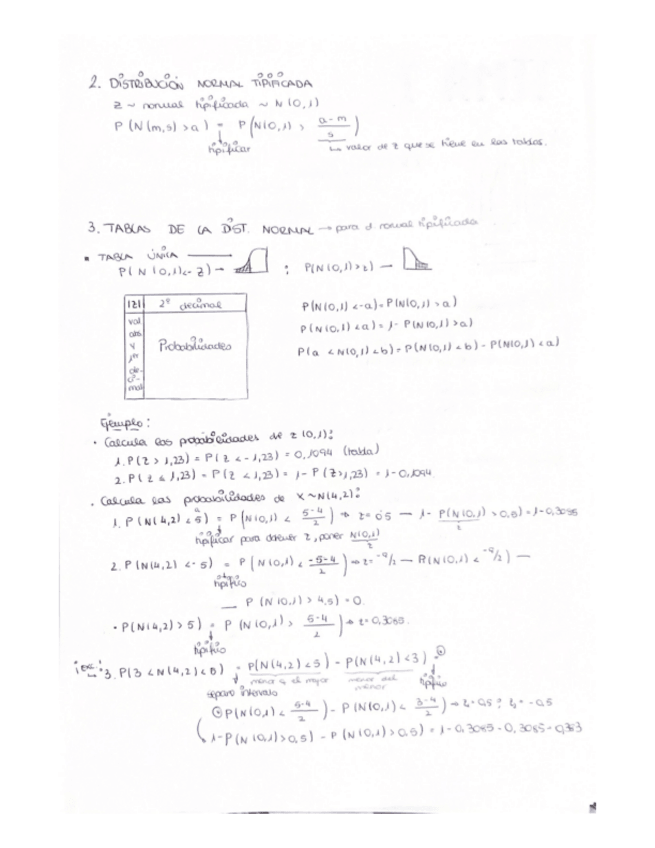 2. DISTRIBUCIÓN NORMAL TIPIFICADA
Z ~ normal tipificada ~ N(0,1)
P(N(m,s) > a) = P(N(0,1) > (a-m)/s)
tipificar
↳ valor de z que se tiene en las tablas.
3. TABLAS DE LA DIST. NORMAL → para d normal tipificada
▪ TABLA ÚNICA
P(N(0,1) < -z) → ; P(N(0,1) > z) →
|z| 2º decimal
val abs y 1er deci-mal
Probabilidades
P(N(0,1) < -a) = P(N(0,1) > a)
P(N(0,1) < a) = 1 - P(N(0,1) > a)
P(a < N(0,1) < b) = P(N(0,1) < b) - P(N(0,1) < a)
Ejemplo:
· Calcula las probabilidades de z(0,1):
1. P(Z > 1,23) = P(Z < -1,23) = 0,1094 (tabla)
2. P(Z ≤ 1,23) = P(Z < 1,23) = 1 - P(Z > 1,23) = 1 - 0,1094
· Calcula las probabilidades de X ~ N(4,2):
1. P(N(4,2) < 5) = P(N(0,1) < (5-4)/2) → z = 0,5 — 1 - P(N(0,1) > 0,5) = 1 - 0,3085
tipificar para obtener z, poner N(0,1)
2. P(N(4,2) < -5) = P(N(0,1) < (-5-4)/2) → z = -9/2 — P(N(0,1) < -9/2) —
tipifico
— P(N(0,1) > 4,5) = 0.
· P(N(4,2) > 5) = P(N(0,1) > (5-4)/2) → z = 0,3085.
tipifico
3. P(3 < N(4,2) < 5) = P(N(4,2) < 5) - P(N(4,2) < 3)
menor q el mayor
menor del menor
tipifico
separo intervalos
P(N(0,1) < (5-4)/2) - P(N(0,1) < (3-4)/2) → z = 0,5 ; z = -0,5
1 - P(N(0,1) > 0,5) - P(N(0,1) > 0,5) = 1 - 0,3085 - 0,3085 = 0,383